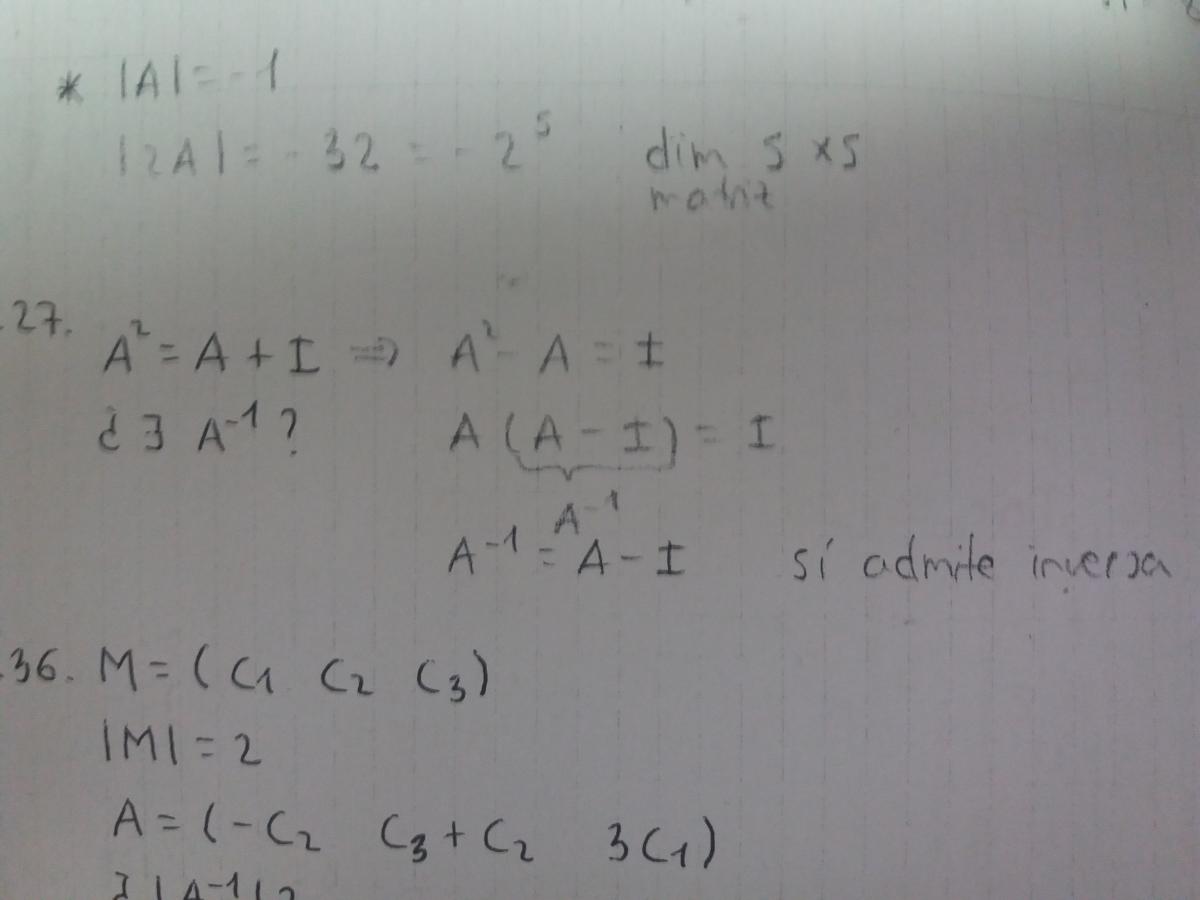 * |A| = -1
|2A| = -32 = -2⁵ dim 5x5
matriz
.27.
A² = A + I ⇒ A² - A = I
¿∃ A⁻¹? A(A - I) = I
A⁻¹
A⁻¹ = A - I sí admite inversa
.36. M = (C₁ C₂ C₃)
|M| = 2
A = (-C₂ C₃ + C₂ 3C₁)
¿|A⁻¹|?